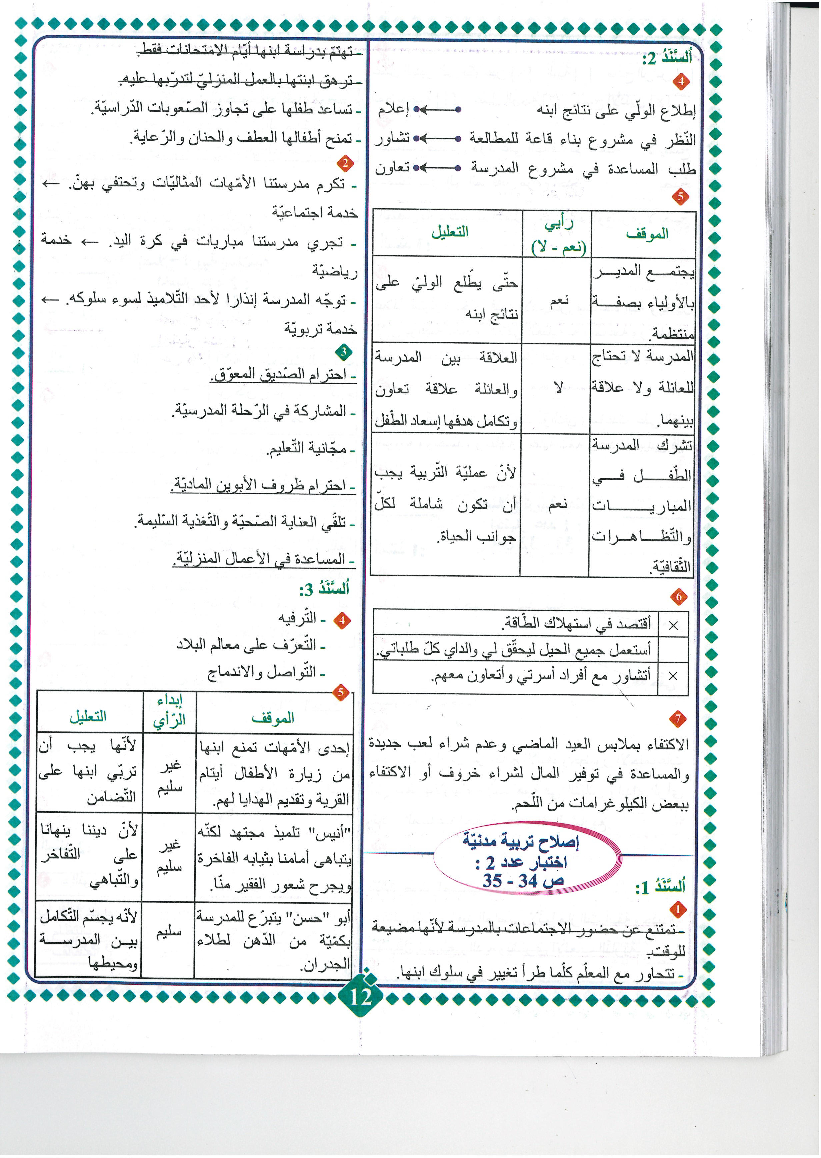 ألسَّنَدُ 2:
4
إطلاع الولّي على نتائج ابنه إعلام
النّظر في مشروع بناء قاعة للمطالعة تشاور
طلب المساعدة في مشروع المدرسة تعاون
5
الموقف
رأيي
(نعم - لا)
التعليل
يجتمع المدير
بالأولياء بصفة
منتظمة.
نعم
حتّى يطّلع الوليّ على
نتائج ابنه
المدرسة لا تحتاج
للعائلة ولا علاقة
بينهما.
لا
العلاقة بين المدرسة
والعائلة علاقة تعاون
وتكامل هدفها إسعاد الطّفل
تشرك المدرسة
الطّفل في
المباريات
والتّظاهرات
الثّقافيّة.
نعم
لأنّ عمليّة التّربية يجب
أن تكون شاملة لكلّ
جوانب الحياة.
6
× أقتصد في استهلاك الطّاقة.
أستعمل جميع الحيل ليحقّق لي والداي كلّ طلباتي.
× أتشاور مع أفراد أسرتي وأتعاون معهم.
7
الاكتفاء بملابس العيد الماضي وعدم شراء لعب جديدة
والمساعدة في توفير المال لشراء خروف أو الاكتفاء
ببعض الكيلوغرامات من اللّحم.
إصلاح تربية مدنيّة
اختبار عدد 2 :
ص 34 - 35
ألسَّنَدُ 1:
1
- تمتنع عن حضور الاجتماعات بالمدرسة لأنّها مضيعة
للوقت.
- تتحاور مع المعلّم كلّما طرأ تغيير في سلوك ابنها.
- تهتمّ بدراسة ابنها أيّام الامتحانات فقط.
- ترهق ابنتها بالعمل المنزليّ لتدرّبها عليه.
- تساعد طفلها على تجاوز الصّعوبات الدّراسيّة.
- تمنح أطفالها العطف والحنان والرّعاية.
2
- تكرم مدرستنا الأمّهات المثاليّات وتحتفي بهنّ. ←
خدمة اجتماعيّة
- تجري مدرستنا مباريات في كرة اليد. ← خدمة
رياضيّة
- توجّه المدرسة إنذارا لأحد التّلاميذ لسوء سلوكه. ←
خدمة تربويّة
3
- احترام الصّديق المعوّق.
- المشاركة في الرّحلة المدرسيّة.
- مجّانية التّعليم.
- احترام ظروف الأبوين الماديّة.
- تلقّي العناية الصّحيّة والتّغذية السّليمة.
- المساعدة في الأعمال المنزليّة.
ألسَّنَدُ 3:
4 - التّرفيه
- التّعرّف على معالم البلاد
- التّواصل والاندماج
5
الموقف
إبداء
الرّأي
التعليل
إحدى الأمّهات تمنع ابنها
من زيارة الأطفال أيتام
القرية وتقديم الهدايا لهم.
غير
سليم
لأنّها يجب أن
تربّي ابنها على
التّضامن
"أنيس" تلميذ مجتهد لكنّه
يتباهى أمامنا بثيابه الفاخرة
ويجرح شعور الفقير منّا.
غير
سليم
لأنّ ديننا ينهانا
على التّفاخر
والتّباهي
أبو "حسن" يتبرّع للمدرسة
بكميّة من الدّهن لطلاء
الجدران.
سليم
لأنّه يجسّم التّكامل
بين المدرسة
ومحيطها
12